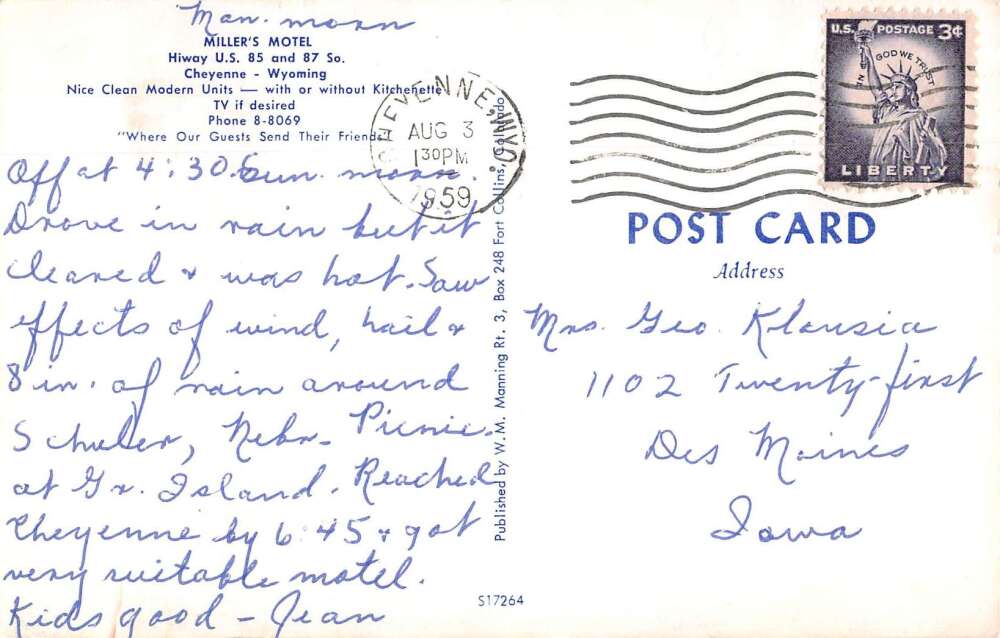 Mon. morn
MILLER'S MOTEL
Hiway U.S. 85 and 87 So.
Cheyenne - Wyoming
Nice Clean Modern Units — with or without Kitchenette
TV if desired
Phone 8-8069
"Where Our Guests Send Their Friends"
Off at 4:30 Sun. morn.
Drove in rain but it
cleared & was hot. Saw
effects of wind, hail &
8 in. of rain around
Schuler, Nebr. Picnic
at Gr. Island. Reached
Cheyenne by 6:45 & got
very suitable motel.
Kids good - Jean
CHEYENNE, WYO.
AUG 3
1 30 PM
1959
Published by W. M. Manning Rt. 3, Box 248 Fort Collins, Colorado
S17264
U.S. POSTAGE 3¢
IN GOD WE TRUST
LIBERTY
POST CARD
Address
Mrs. Geo. Klousia
1102 Twenty-first
Des Moines
Iowa